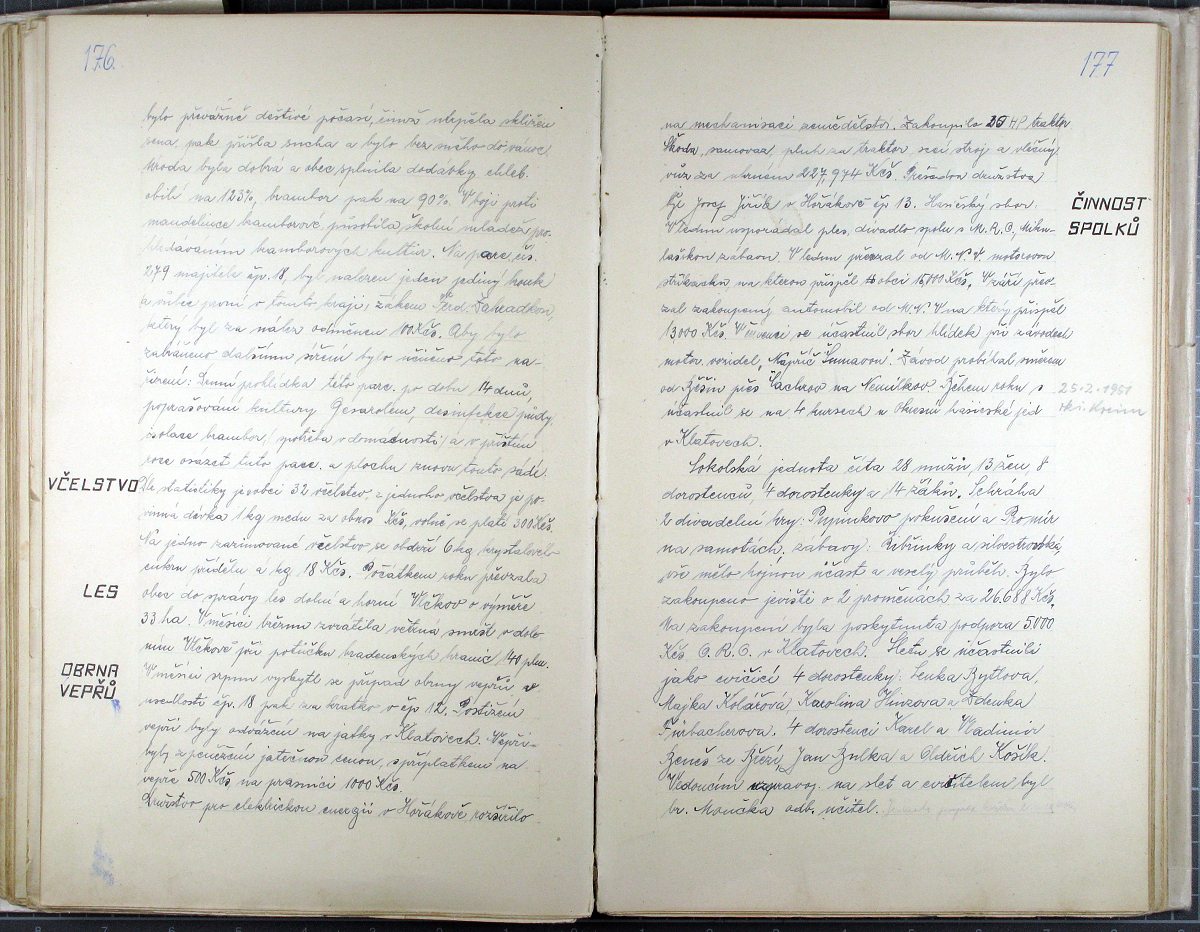 176.
bylo převážně deštivé počasí, čímž utrpěla sklizeň
sena, pak přišla sucha a bylo bez mého do vánoc
úroda byla dobrá a obec splnila dodávky chleb.
obilí na 123%, brambor pak na 90%. V boji proti
mandelince bramborové, působila školní mládež pro-
hledáváním bramborových kultur. Na parc. čís.
279 majitele čp. 18, byl nalezen jeden jediný brouk
a vůbec první v tomto kraji, žákem Ferd.
který byl za nález odměněn Kčs. Aby bylo
zabráněno dalšímu šíření bylo učiněno toto na-
řízení: Denní prohlídka této parc. po dobu 14 dnů,
poprašování kultury Gesarolem, desinfekce půdy,
isolace brambor, /potřeba v domácnosti/ a v příštím
roce osázet tuto parc. a plochu znovu touto sadě.
VČELSTVO
Dle statistiky je v obci 32 včelstev, z jednoho včelstva je po-
vinná dávka 1 kg medu za obnos Kčs, volně se platí 300 Kčs.
Na jedno zazimované včelstvo se obdrží 6 kg krystalového
cukru přídělu a kg. 18 Kčs. Počátkem roku převzala
LES
obec do správy les dolní a horní Vlčkov o výměře
33 ha. V měsíci březnu zvrátila větrná smršť v dole-
ním Vlčkově při potůčku hradenských hranic 140 plm.
OBRNA
VEPŘŮ
V měsíci srpnu vyskytl se případ obrny vepřů v
usedlosti čp. 18 pak za krátko v čp 12. Postižení
vepři byly odváženi na jatky v Klatovech. Vepři
byly z peněžení jatečnou cenou, s příplatkem na
vepře 500 Kčs, na prasnici 1000 Kčs.
Družstvo pro elektrickou energii v Hořákově rozšířilo
177
na mechanisaci zemědělství. Zakoupilo HP traktor
Škoda, samovaz, pluh za traktor secí stroj a vlečný
vůz za obnosem 227,974 Kčs. Předsedou družstva
ČINNOST
SPOLKŮ
byl Josef Jiřík v Hořákově čp 13. Hasičský sbor.
V lednu uspořádal ples, divadlo spolu s M. R. O., Miku-
lášskou zábavu. V lednu převzal od M. N. V. motorovou
stříkačku na kterou přispěl obci 15,000 Kčs. V září přev-
zal zakoupený automobil od M. N. V. na který přispěl
13 000 Kčs. V červenci se účastnil sbor hlídek při závodech
motor. vozidel, "Napříč Šumavou". Závod probíhal směrem
od Běšin přes Čachrov na Nemilkov. Během roku s
25. 2. 1951
účastnil se na 4 kursech u Okresní hasičské jed
v Klatovech.
Sokolská jednota číta 28 mužů, 13 žen, 8
dorostenců, 4 dorostenky a 14 žáků. Sehrála
2 divadelní hry: pokušení a
na samotách, zábavy: Šibřinky a silvestrovská,
vše mělo hojnou účast a veselý průběh. Bylo
zakoupeno jeviště o 2 proměnách za 26.688 Kčs.
Na zakoupení byla poskytnuta podpora 5.000
Kčs O. R. O. v Klatovech. Sletu se účastnili
jako cvičící 4 dorostenky: Lenka Bytlová,
Majka Kolářová, Karolina Hinzova a Zdenka
Fürbacherova. 4 dorostenci Karel a Vladimír
Beneš ze Březí, Jan Zulka a Oldřich Košťka.
Vedoucím výpravy na slet a cvičitelem byl
br. Moučka odb. učitel.